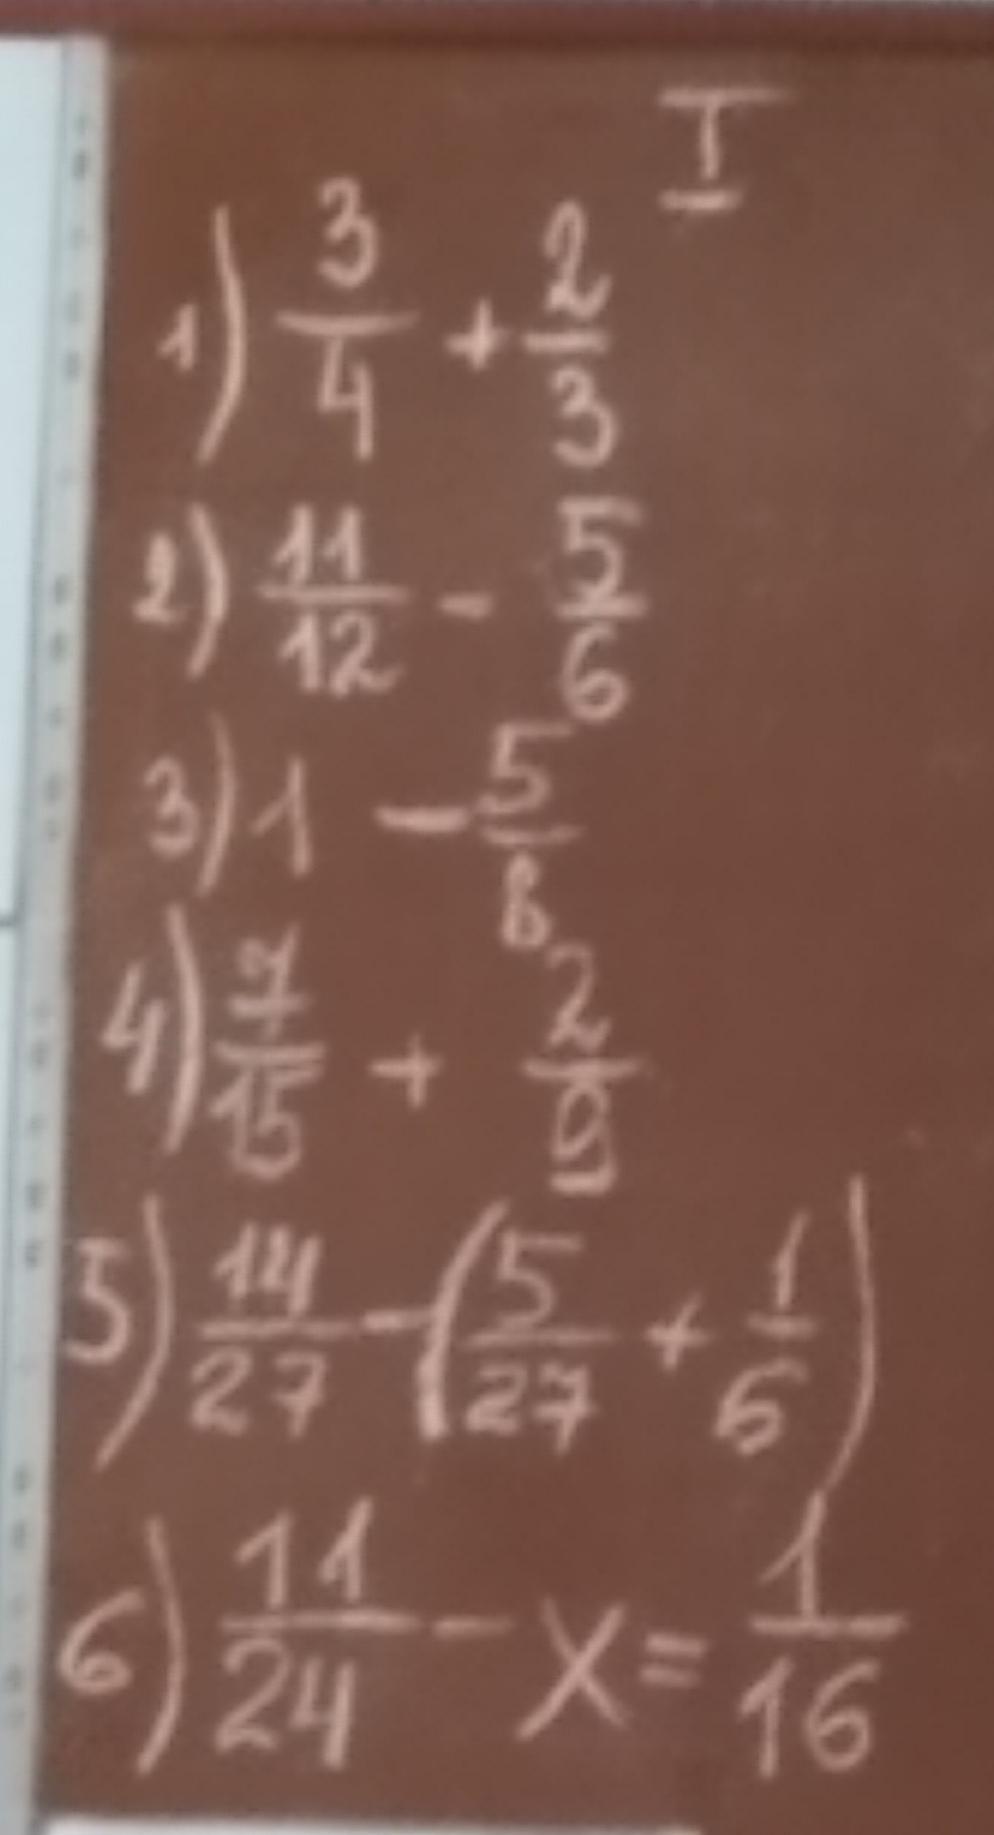 I
1) 3/4 + 2/3
2) 11/12 - 5/6
3) 1 - 5/8
4) 7/15 + 2/9
5) 14/27 - (5/27 + 1/6)
6) 11/24 - x = 1/16